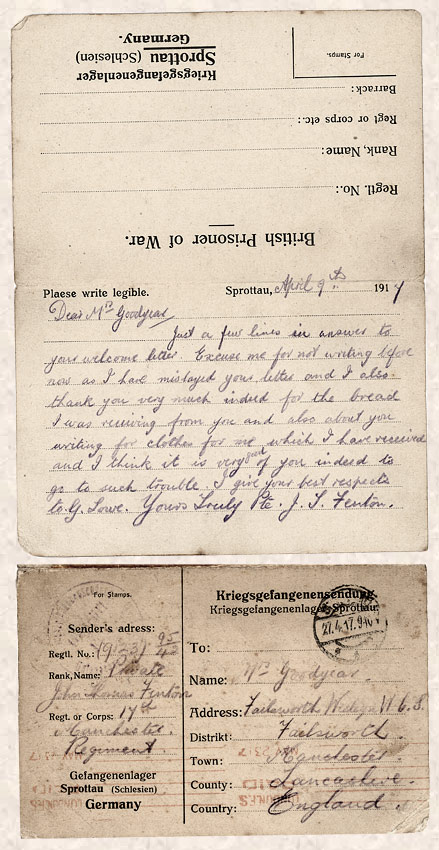 British Prisoner of War.
Regtl. No.:
Rank, Name:
Regt or corps etc.:
Barrack:
For Stamps.
Kriegsgefangenenlager
Sprottau (Schlesien)
Germany.
Plaese write legible. Sprottau, April 9th 1917
Dear Mrs Goodyear
Just a few lines in answer to
your welcome letter. Excuse me for not writing before
now as I have mislayed your letter and I also
thank you very much indeed for the bread
I was receiving from you and also about you
writing for clothes for me which I have received
and I think it is very good of you indeed to
go to such trouble. I give your best respects
to G. Lowe. Yours Truly Pte. J. T. Fenton.
For Stamps.
Sender's adress:
Regtl. No.:
Rank, Name: Private
John Thomas Fenton
Regt. or Corps: 17th
Manchester
Regiment.
Gefangenenlager
Sprottau (Schlesien)
Germany
Kriegsgefangenensendung
Kriegsgefangenenlager Sprottau.
27.4.17.9-10
To:
Name: Mrs Goodyear.
Address: Failsworth
Distrikt: Failsworth.
Town: Manchester.
County: Lancashire.
Country: England.